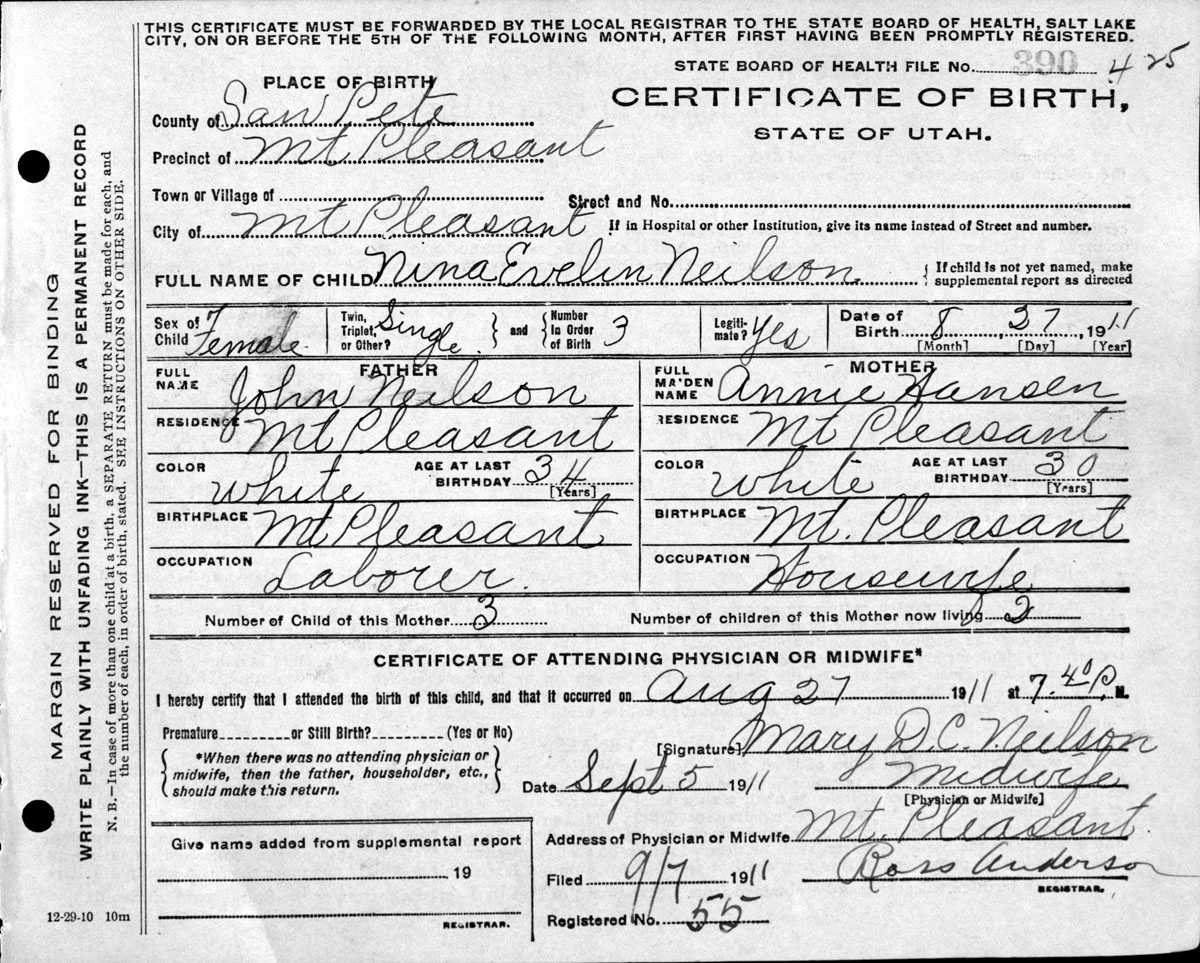 THIS CERTIFICATE MUST BE FORWARDED BY THE LOCAL REGISTRAR TO THE STATE BOARD OF HEALTH, SALT LAKE
CITY, ON OR BEFORE THE 5TH OF THE FOLLOWING MONTH, AFTER FIRST HAVING BEEN PROMPTLY REGISTERED.
STATE BOARD OF HEALTH FILE No. 390 425
PLACE OF BIRTH
CERTIFICATE OF BIRTH,
STATE OF UTAH.
County of San Pete
Precinct of Mt Pleasant
Town or Village of
Street and No.
City of Mt Pleasant
If in Hospital or other Institution, give its name instead of Street and number.
FULL NAME OF CHILD Nina Evelin Neilson
{ If child is not yet named, make
supplemental report as directed
Sex of Child Female
Twin, Triplet, or Other? Single } and { Number In Order of Birth 3
Legiti-mate? Yes
Date of Birth 8, 27, 1911
[Month] [Day] [Year]
FATHER
FULL NAME John Neilson
RESIDENCE Mt Pleasant
COLOR White
AGE AT LAST BIRTHDAY 34 [Years]
BIRTHPLACE Mt Pleasant
OCCUPATION Laborer.
MOTHER
FULL MAIDEN NAME Annie Hansen
RESIDENCE Mt Pleasant
COLOR White
AGE AT LAST BIRTHDAY 30 [Years]
BIRTHPLACE Mt. Pleasant
OCCUPATION Housewife
Number of Child of this Mother 3
Number of children of this Mother now living 2
CERTIFICATE OF ATTENDING PHYSICIAN OR MIDWIFE*
I hereby certify that I attended the birth of this child, and that it occurred on Aug 27 1911 at 7.40 P. M.
Premature or Still Birth? (Yes or No)
{ *When there was no attending physician or
midwife, then the father, householder, etc.,
should make this return. }
[Signature] Mary D.C. Neilson
Midwife
[Physician or Midwife]
Date Sept 5 1911
Address of Physician or Midwife Mt. Pleasant
Filed 9/7 1911
Ross Anderson
REGISTRAR.
Registered No. 55
Give name added from supplemental report
19
REGISTRAR.
12-29-10 10m
MARGIN RESERVED FOR BINDING
WRITE PLAINLY WITH UNFADING INK—THIS IS A PERMANENT RECORD
N. B.—In case of more than one child at a birth, a SEPARATE RETURN must be made for each, and
the number of each, in order of birth, stated. SEE INSTRUCTIONS ON OTHER SIDE.